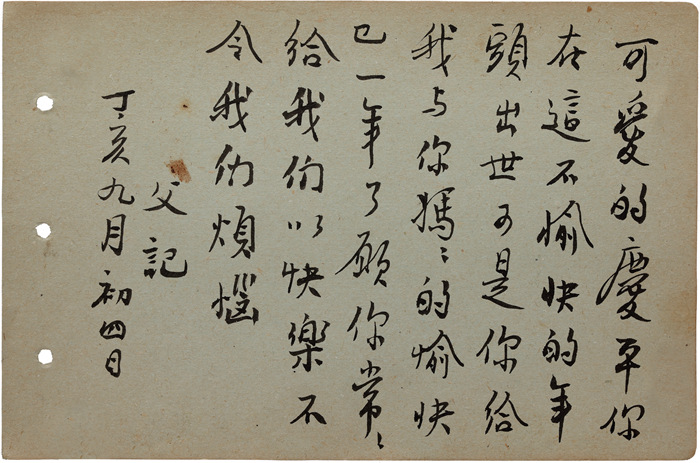 可愛的慶平你
在這不愉快的年
頭出世可是你給
我与你媽〻的愉快
已一年了願你常〻
給我们以快樂不
令我们煩惱
父記
丁亥九月初四日